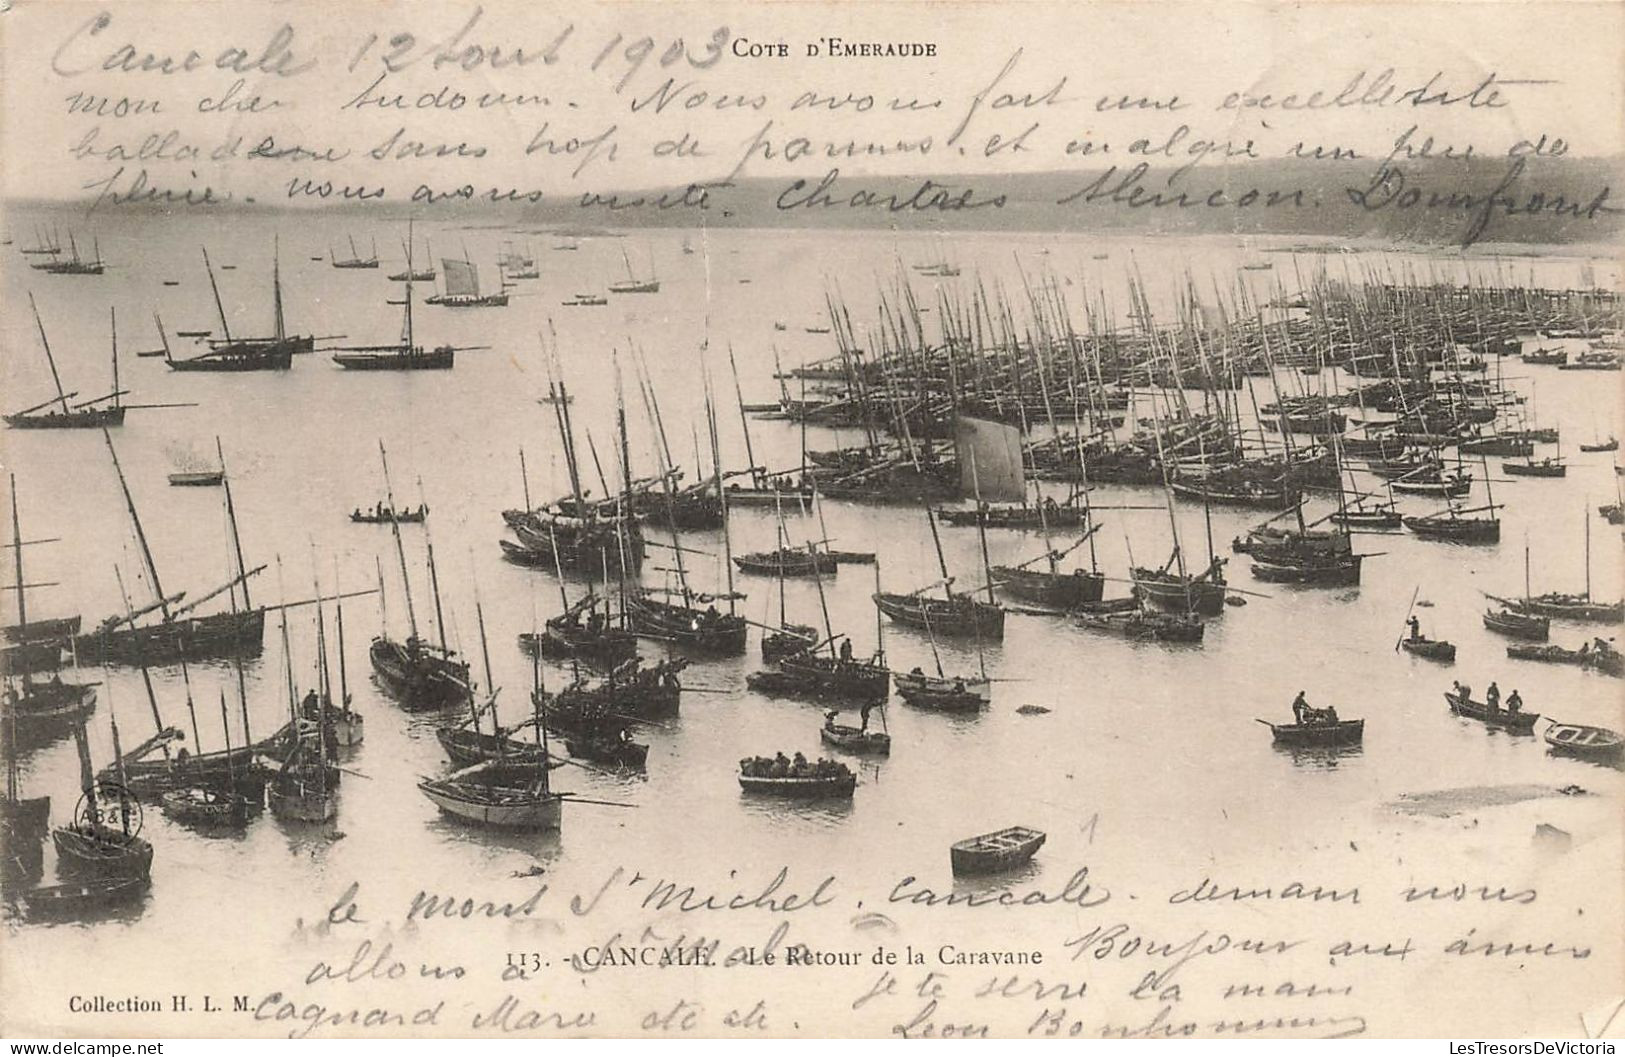 Cancale 12 Aout 1903 COTE D'EMERAUDE
mon cher Nous avons fait une excellente
ballade sans trop de pannes. et malgré un peu de
pluie. nous avons visité. Chartres Alencon. Domfront
le mont St Michel. Cancale. demain nous
allons a St Malo Bonjour aux amis
113. - CANCALE. - Le Retour de la Caravane
je te serre la main
Collection H. L. M. Cagnard etc etc.
Leon
AB&C
LesTresorsDeVictoria